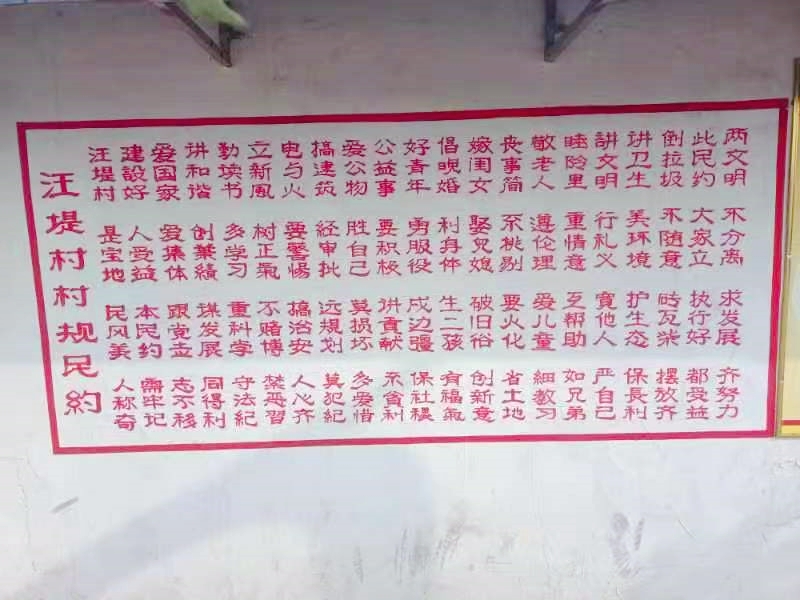 汪堤村村规民約
汪堤村 是宝地 民风美 人称奇
建設好 人受益 本民约 需牢记
爱国家 爱集体 跟党走 志不移
讲和谐 创業績 谋发展 同得利
勤读书 多学习 重科学 守法紀
立新風 树正氣 不赌博 禁恶習
电与火 要警惕 搞治安 人心齐
搞建筑 经审批 远規划 莫犯紀
爱公物 胜自己 莫损坏 多爱惜
公益事 要积极 讲貢献 不貪利
好青年 勇服役 戍边疆 保社稷
倡晚婚 利身体 生二孩 有福氣
嫁闺女 娶兒媳 破旧俗 创新意
丧事简 不挑剔 要火化 省土地
敬老人 遵伦理 爱儿童 細教习
睦邻里 重情意 互帮助 如兄弟
講文明 行礼义 寬他人 严自己
讲卫生 美环境 护生态 保長利
倒垃圾 不随意 砖瓦柴 摆放齐
此民约 大家立 执行好 都受益
两文明 不分离 求发展 齐努力